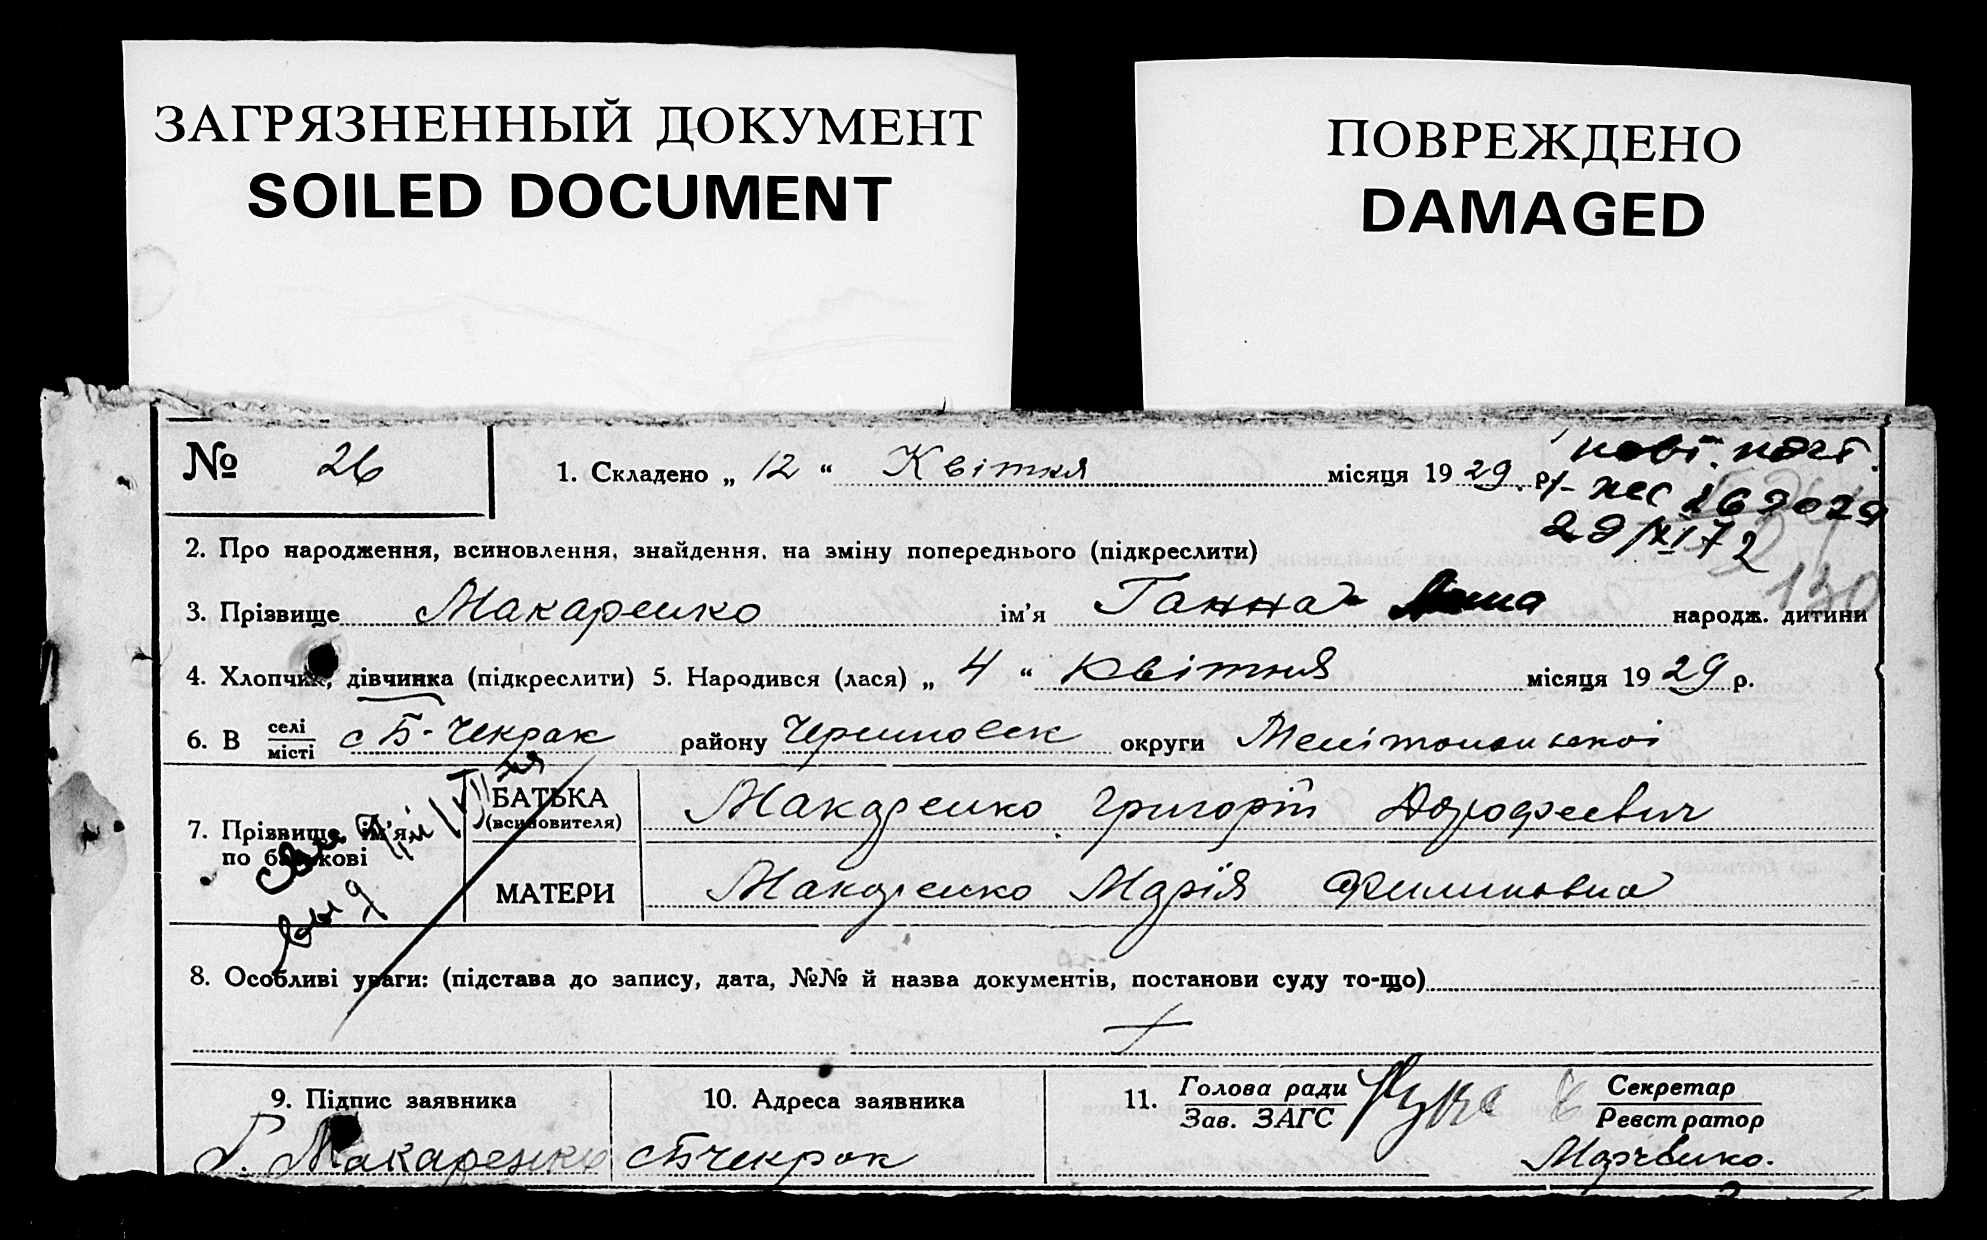 ЗАГРЯЗНЕННЫЙ ДОКУМЕНТ
SOILED DOCUMENT
ПОВРЕЖДЕНО
DAMAGED
№ 26
1. Складено „ 12 “ Квітня місяця 1929. р.
29/XI 72
130
2. Про народження, всиновлення, знайдення, на зміну попереднього (підкреслити)
3. Прізвище Макаренко ім’я Ганна - Анна народж. дитини
4. Хлопчик, дівчинка (підкреслити) 5. Народився (лася) „ 4 “ квітня місяця 1929 р.
6. В селі місті с Б-Чекрак району округи Мелітопольської
7. Прізвище, ім’я по батькові
БАТЬКА (всиновителя) Макаренко Григорій Дорофеевич
МАТЕРИ Макаренко Марія Филиповна
8. Особливі уваги: (підстава до запису, дата, №№ й назва документів, постанови суду то-що)
9. Підпис заявника
Г. Макаренко
10. Адреса заявника
с Б Чекрак
11. Голова ради Зав. ЗАГС
Секретар Реєстратор